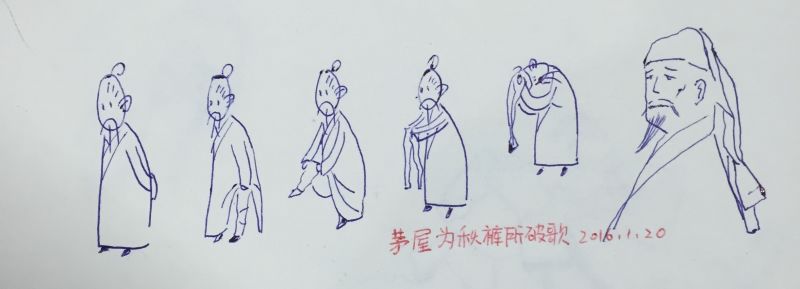 茅屋为秋裤所破歌 2016.1.20